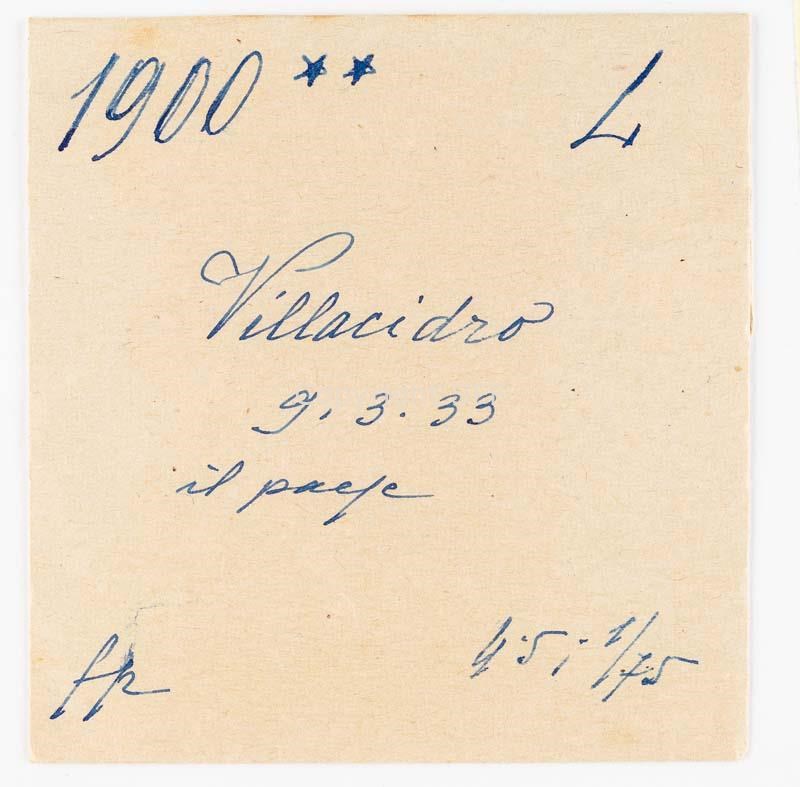 1900 ** L
Villacidro
9.3.33
il paese
fp 4.5; 1/75